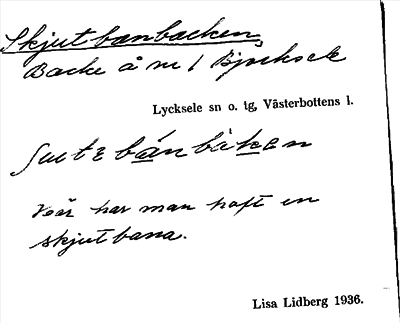 Skjutbanbacken,
Backe å nr 1 Björksele
Lycksele sn o. tg, Västerbottens l.
bánbáken
här har man haft en
skjutbana.
Lisa Lidberg 1936.